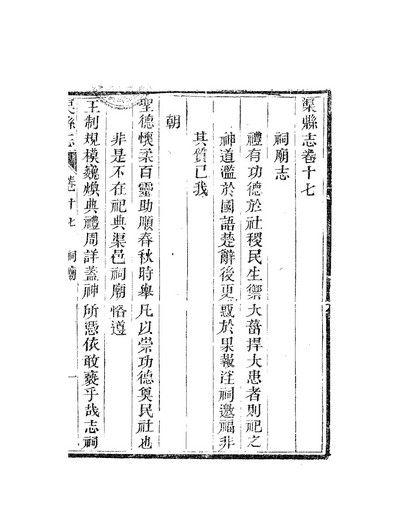 渠縣志卷十七
祠廟志
禮有功德於社稷民生禦大菑捍大患者則祀之
神道濫於國語楚辭後更惑於果報淫祠邀福非
其質已我
朝
聖德懷柔百靈助順春秋時舉凡以崇功德與民社也
非是不在祀典渠邑祠廟恪遵
王制規模巍煥典禮周詳蓋神所憑依敢褻乎哉志祠
渠縣志 卷之十七 祠廟 一